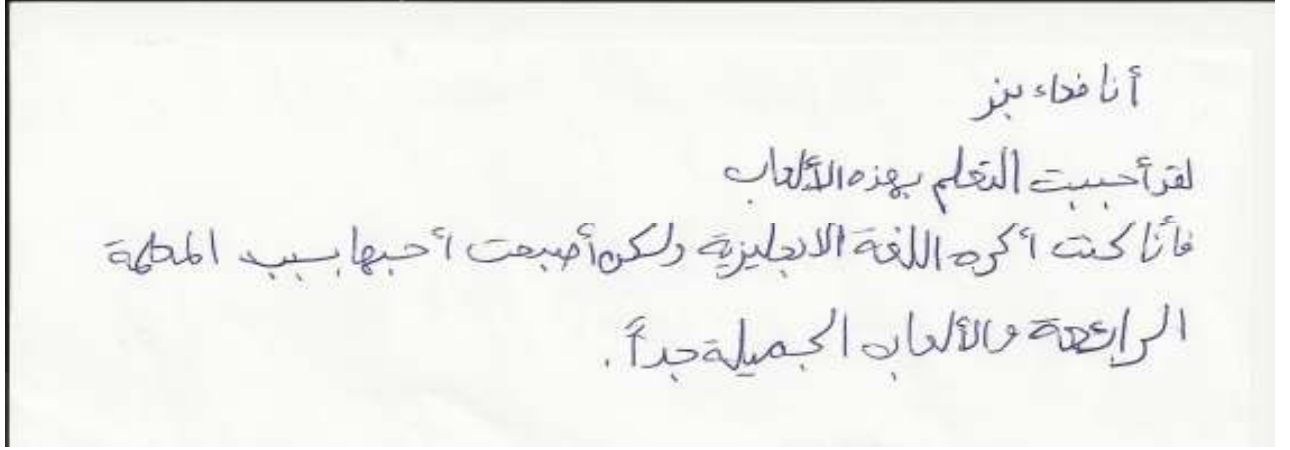 أنا فداء بنر
لقد أحببت التعلم بهذه الألعاب
فأنا كنت أكره اللغة الانجليزية ولكن أصبحت أحبها بسبب المعلمة
الرائعة والألعاب الجميلة جداً .